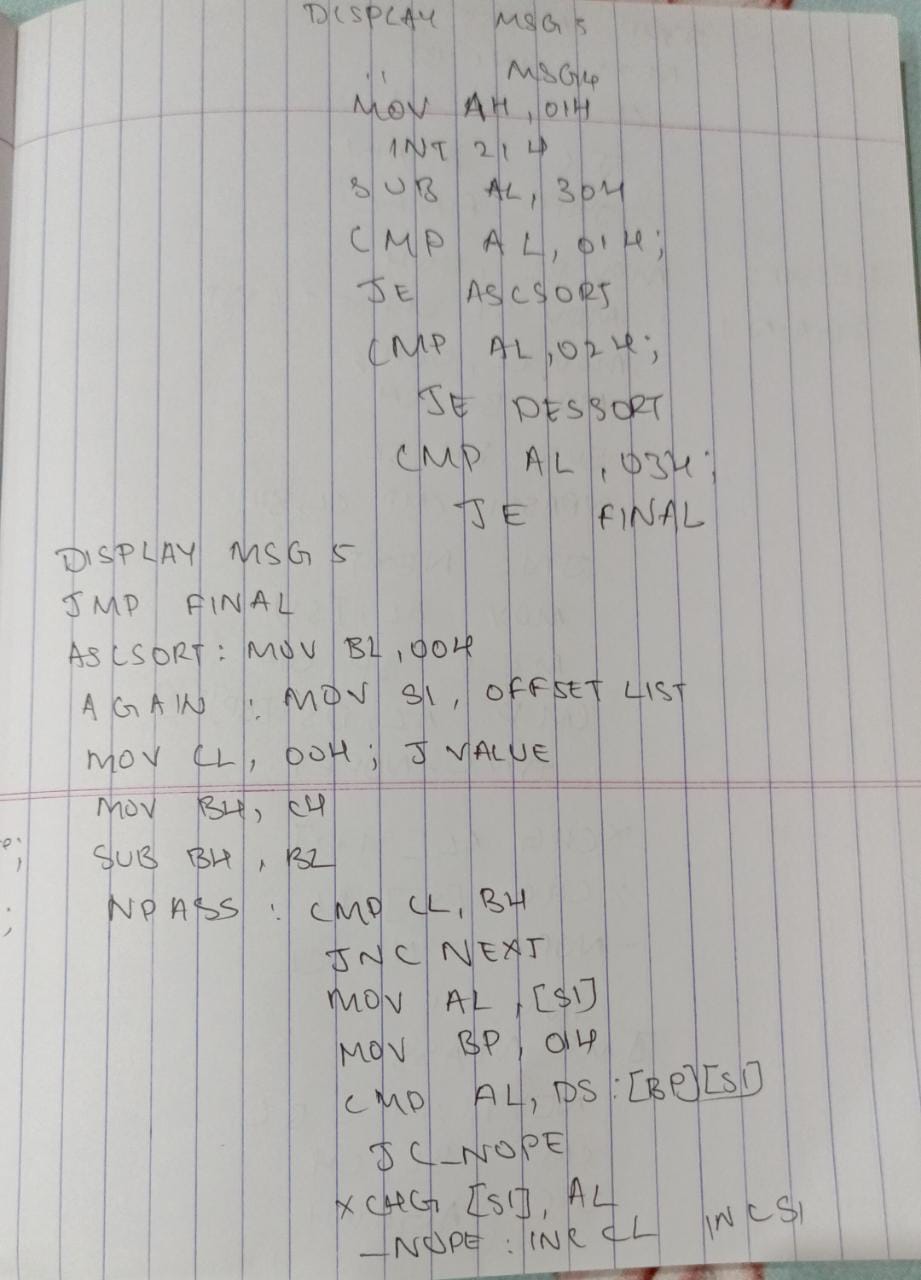 DISPLAY MSG 5
" MSG4
MOV AH, 01H
INT 21H
SUB AL, 30H
CMP AL, 01H;
JE ASCSORT
CMP AL, 02H;
JE DESSORT
CMP AL, 03H;
JE FINAL
DISPLAY MSG 5
JMP FINAL
ASCSORT: MOV BL, 00H
AGAIN : MOV SI, OFFSET LIST
MOV CL, 00H; J VALUE
MOV BH, CH
SUB BH, BL
NPASS : CMP CL, BH
JNC NEXT
MOV AL, [SI]
MOV BP, 01H
CMP AL, DS:[BP][SI]
JC _NOPE
XCHG [SI], AL
_NOPE : INR CL INC SI